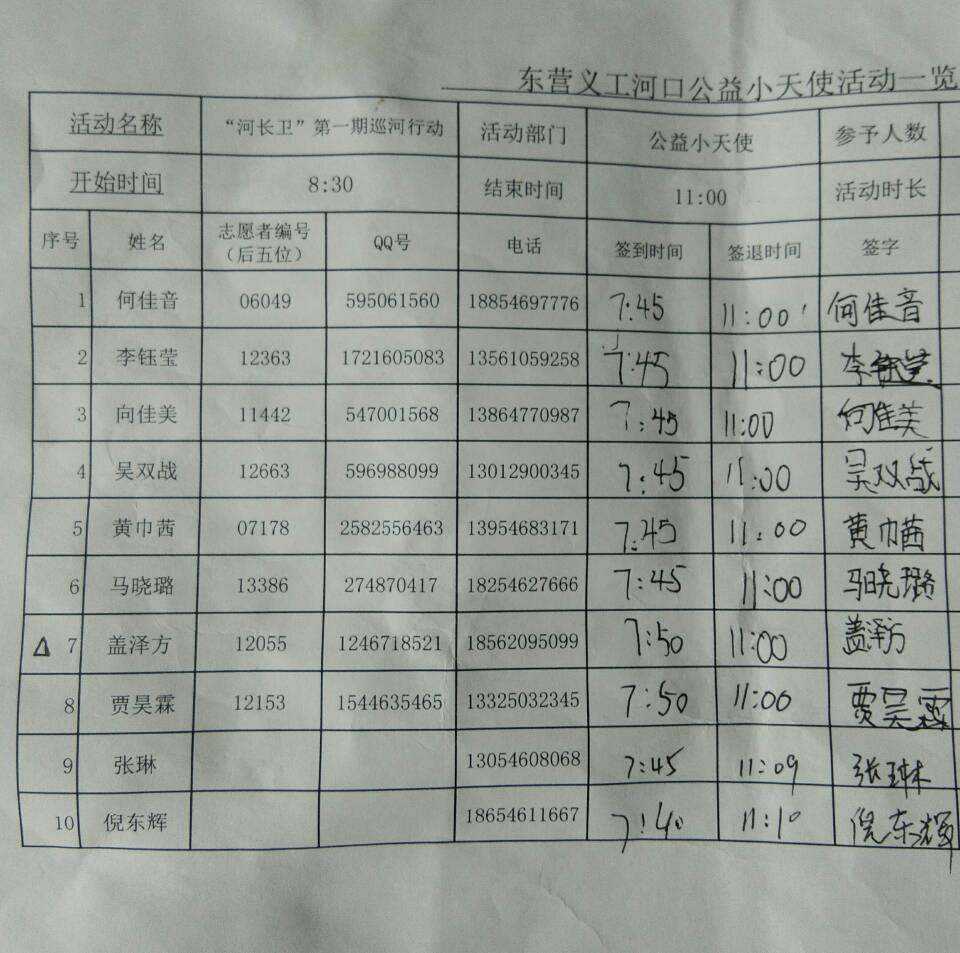 东营义工河口公益小天使活动一览
活动名称 “河长卫”第一期巡河行动 活动部门 公益小天使 参予人数
开始时间 8:30 结束时间 11:00 活动时长
序号 姓名 志愿者编号（后五位） QQ号 电话 签到时间 签退时间 签字
1 何佳音 06049 595061560 18854697776 7:45 11:00 何佳音
2 李钰莹 12363 1721605083 13561059258 7:45 11:00 李钰莹
3 向佳美 11442 547001568 13864770987 7:45 11:00 向佳美
4 吴双战 12663 596988099 13012900345 7:45 11:00 吴双战
5 黄巾茜 07178 2582556463 13954683171 7:45 11:00 黄巾茜
6 马晓璐 13386 274870417 18254627666 7:45 11:00 马晓璐
Δ 7 盖泽方 12055 1246718521 18562095099 7:50 11:00 盖泽方
8 贾昊霖 12153 1544635465 13325032345 7:50 11:00 贾昊霖
9 张琳 13054608068 7:45 11:09 张琳
10 倪东辉 18654611667 7:40 11:10 倪东辉